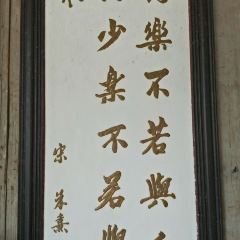 樂不若與
少楽不若與
宋 朱熹